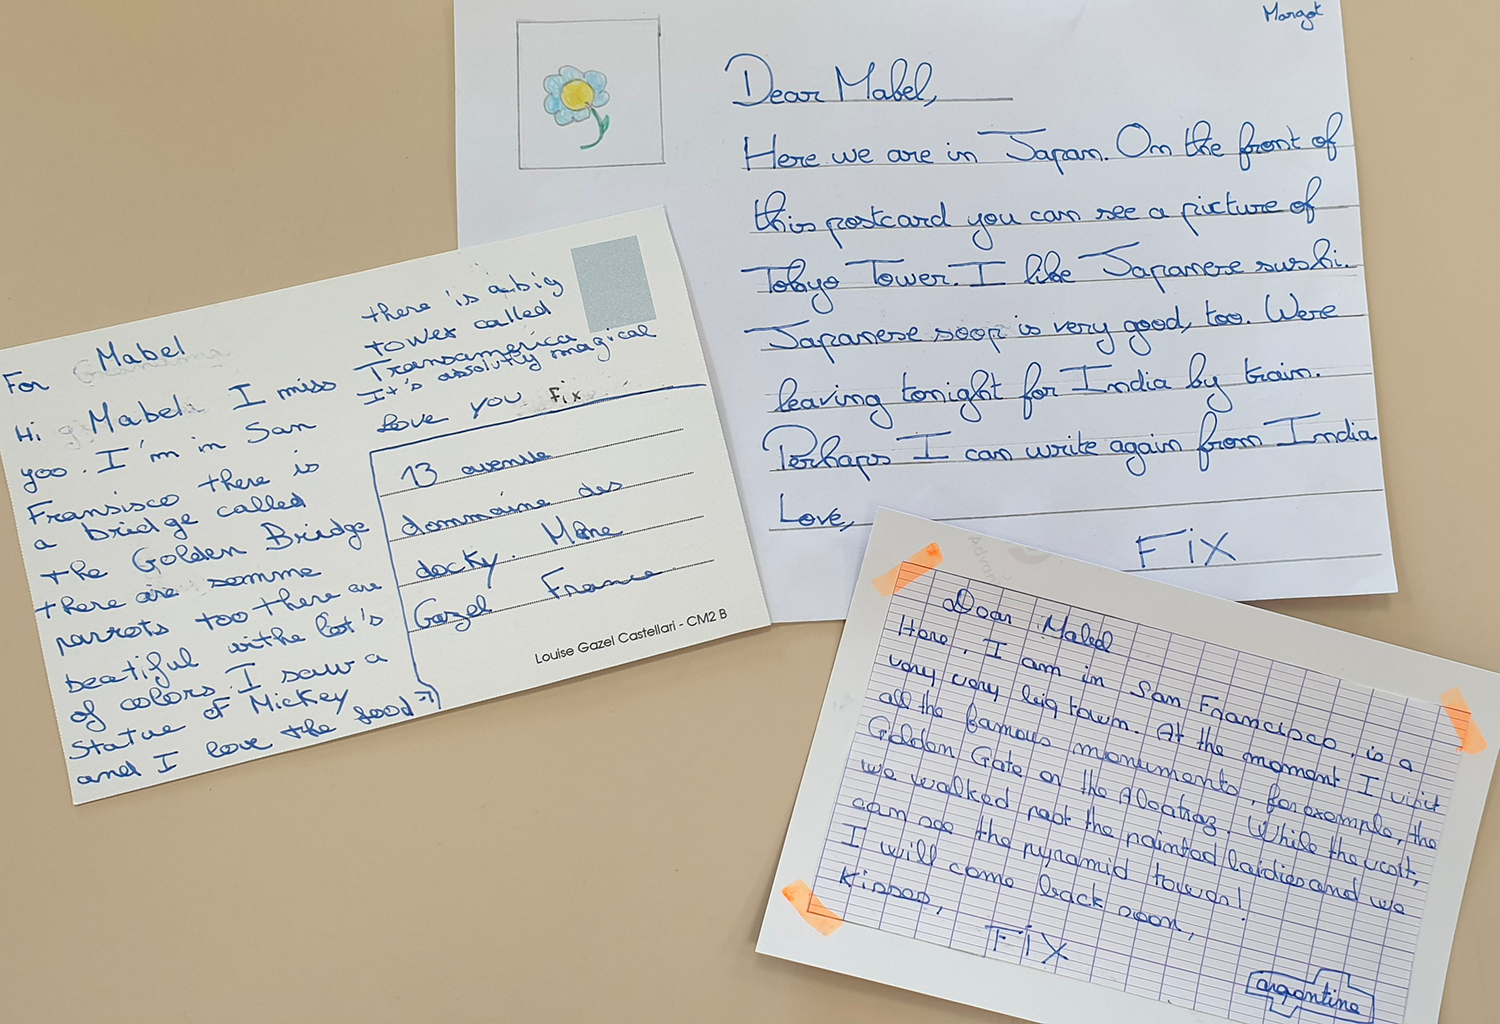 For Mabel
Hi Mabel. I miss
yoo. I'm in San
Fransisco there is
a bridge called
the Golden Bridge
there are somme
parrots too there are
beatiful withe lot's
of colors. I saw a
Statue of Mickey
and I love the food →
there is a big
tower called
Transamerica
It's absolutly magical
Love you Fix
13 avenue
dommaine des
docky. Mône
Gazel France
Louise Gazel Castellari - CM2 B
Margot
Dear Mabel,
Here we are in Japan. On the front of
this postcard you can see a picture of
Tokyo Tower. I like Japanese sushi.
Japanese soop is very good, too. Were
leaving tonight for India by train.
Perhaps I can write again from India
Love,
Fix
Dear Mabel
Here, I am in San Francisco, is a
very very big town. At the moment I visit
all the famous monuments, for example, the
Golden Gate or the Alcatraz. While the visit,
we walked past the painted laidies and we
can see the pyramid tower!
I will come back soon,
Kisses,
FIX
argentine